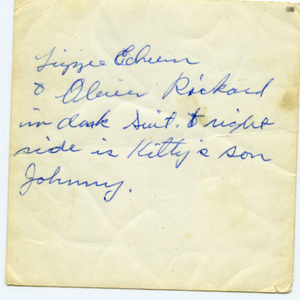 Lizzie Echern
& Oliver Rickard
in dark suit. & right
side is Kitty's son
Johnny.